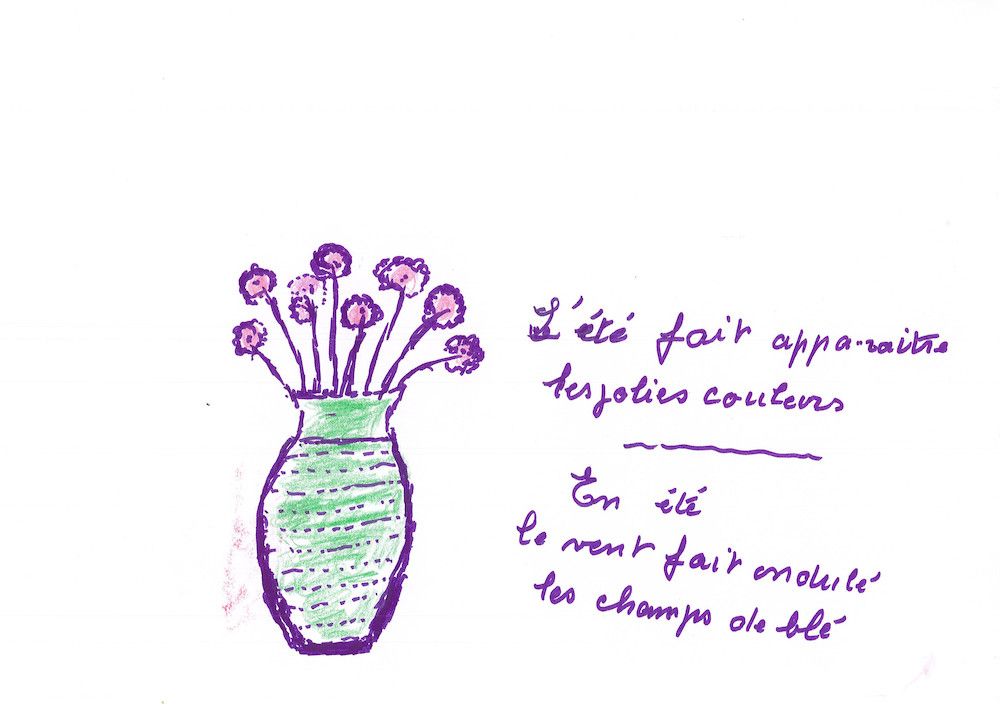 L'été fait apparaitre
les jolies couleurs
En été
le vent fait ondulé
les champs de blé